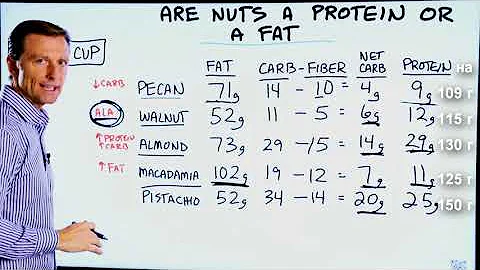 ARE NUTS A PROTEIN OR
A FAT
CUP
FAT CARB - FIBER NET CARB PROTEIN на
↓ CARB
PECAN 71g 14 - 10 = 4g 9g 109 г
ALA WALNUT 52g 11 - 5 = 6g 12g 115 г
↑ PROTEIN
↑ CARB
ALMOND 73g 29 - 15 = 14g 29g 130 г
↑ FAT
MACADAMIA 102g 19 - 12 = 7g 11g 125 г
PISTACHIO 52g 34 - 14 = 20g 25g 150 г